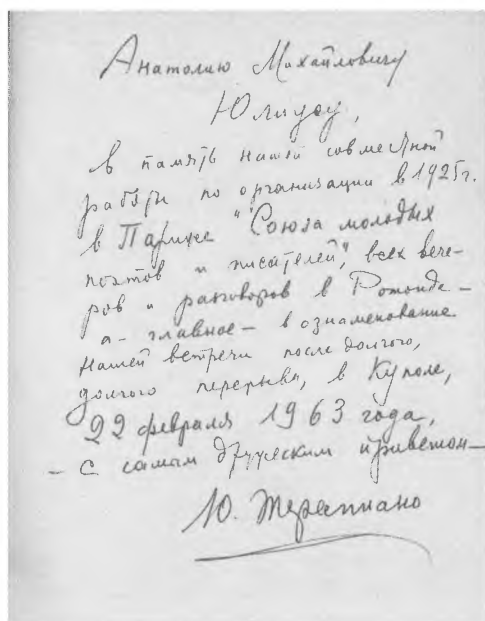 Анатолию Михайловичу
Юлиусу,
в память нашей совместной
работы по организации в 1925 г.
в Париже "Союза молодых
поэтов и писателей", всех вече-
ров и разговоров в Ротонде -
а - главное - в ознаменование
нашей встречи после долгого,
долгого перерыва, в Куполе,
22 февраля 1963 года,
- с самым дружеским приветом -
Ю. Терапиано